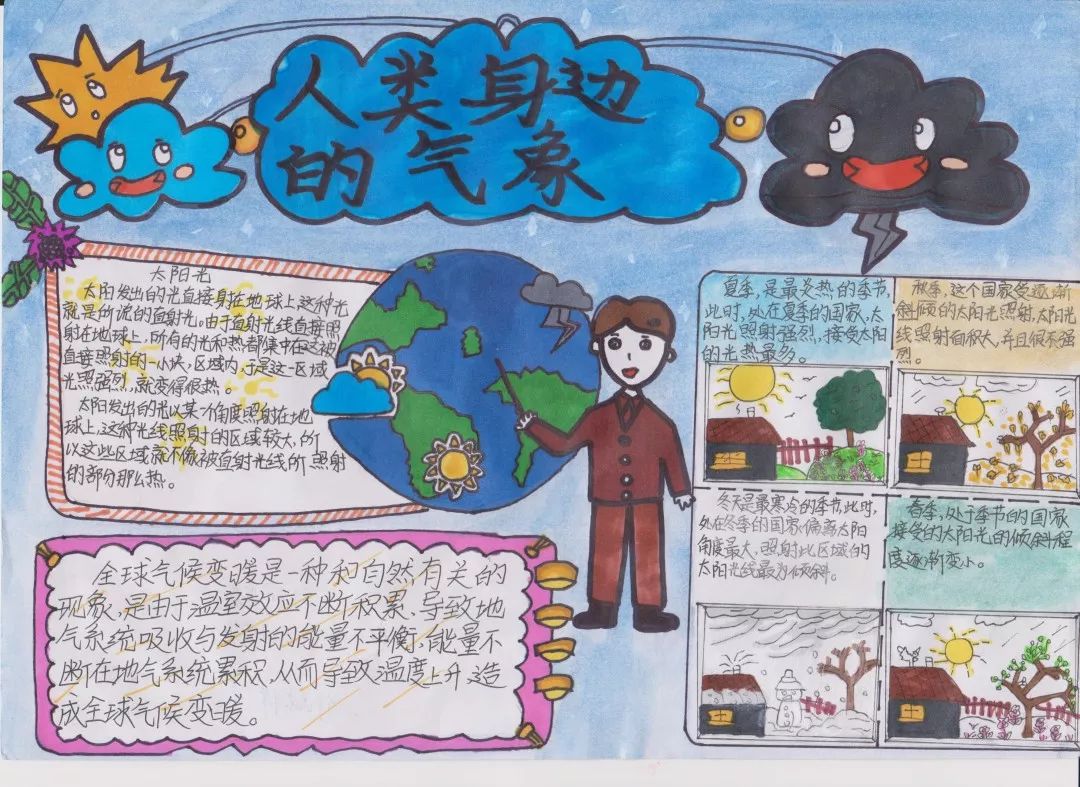 人类身边
的气象
太阳光
太阳发出的光直接身在地球上这种光
就是所说的直射光,由于直射光线直接照
射在地球上,所有的光和热都集中在这被
直接照射的一小块,区域内,于是这一区域
光照强烈,就变得很热。
太阳发出的光以某个角度照射在地
球上,这种光线照射的区域较大,所
以这些区域就不像被直射光线所照射
的部分那么热。
全球气候变暖是一种和自然有关的
现象,是由于温室效应不断积累、导致地
气系统吸收与发射的能量不平衡,能量不
断在地气系统累积,从而导致温度上升,造
成全球气候变暖。
夏季,是最炎热的季节,
此时,处在夏季的国家,太
阳光照射强烈,接受太阳
的光热最多。
秋季,这个国家受逐渐
斜倾的太阳光照射,太阳光
线照射面积大,并且很不强
烈。
冬天是最寒冷的季节,此时,
处在冬季的国家偏离太阳
角度最大,照射此区域的
太阳光线最为倾斜。
春季,处于季节的国家
接受的太阳光的倾斜程
度逐渐变小。